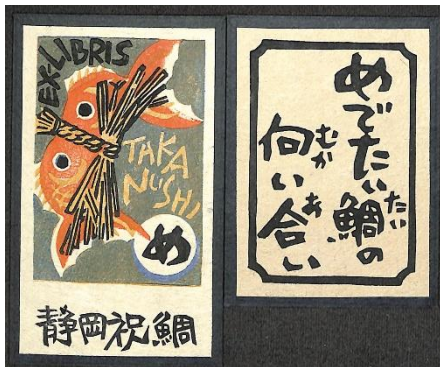 EX-LIBRIS
TAKA
NUSHI
め
静岡祝鯛
めでたい鯛の
たい
向い合い
むか
あ